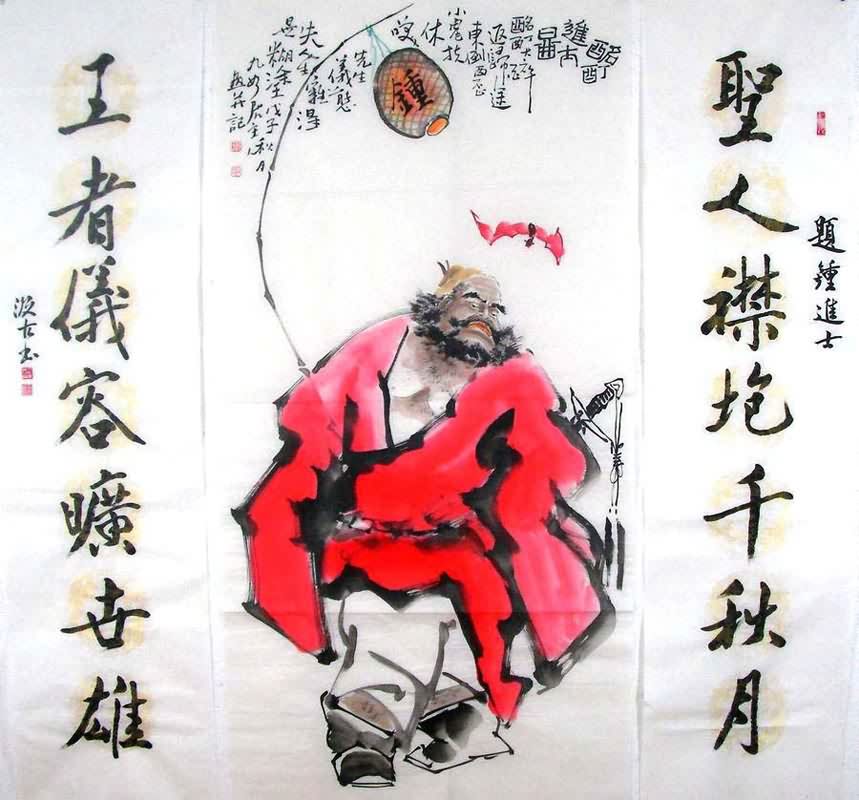 聖人襟抱千秋月
題鍾進士
酩酊
進士
圖
酩酊大醉
返歸途
東倒西歪
小鬼扶
休
先生
儀態
失人生難得
是糊塗戊子秋月
九如居主人
並記
鍾
王者儀容曠世雄
汲古書